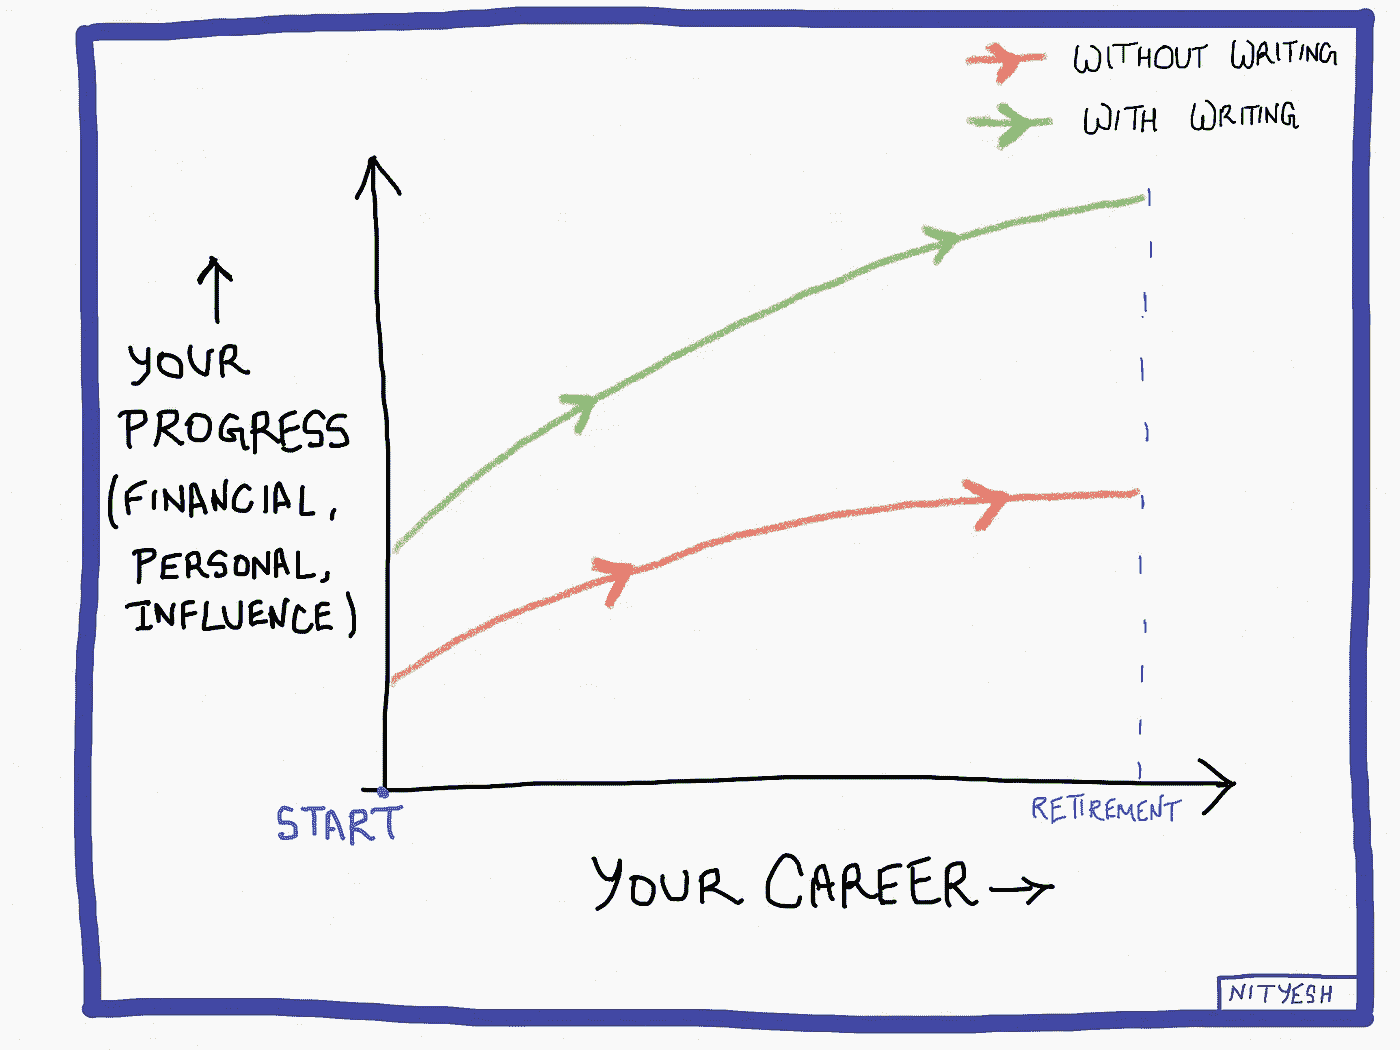 WITHOUT WRITING
WITH WRITING
YOUR
PROGRESS
(FINANCIAL,
PERSONAL,
INFLUENCE)
START
RETIREMENT
YOUR CAREER
NITYESH